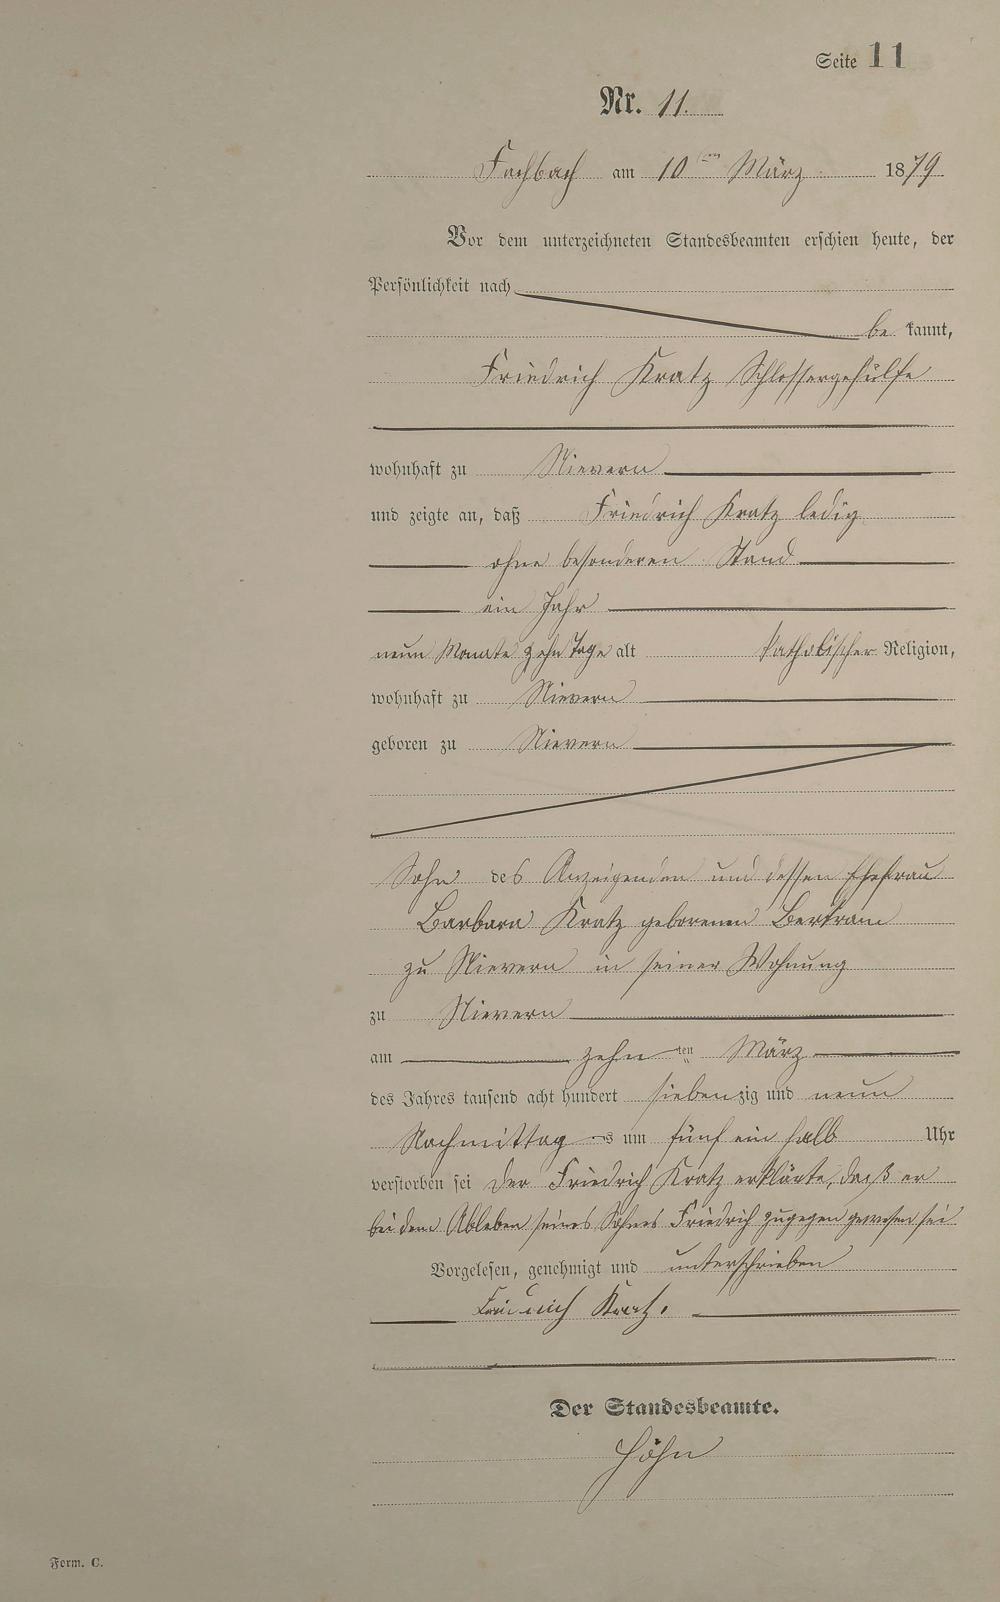 Seite 11
Nr. 11.
Fachbach am 10ten März 1879
Vor dem unterzeichneten Standesbeamten erschien heute, der
Persönlichkeit nach
be kannt,
Friedrich Kratz Schlossergehülfe
wohnhaft zu Nievern
und zeigte an, daß Friedrich Kratz ledig
ohne besonderen Stand
ein Jahr
neun Monate zehn Tage alt katholischer Religion,
wohnhaft zu Nievern
geboren zu Nievern
Sohn des Anzeigenden und dessen Ehefrau
Barbara Kratz geborenen Bertram
zu Nievern in seiner Wohnung
zu Nievern
am zehn ten März
des Jahres tausend acht hundert siebenzig und neun
Nachmittag s um fünf ein halb Uhr
verstorben sei Der Friedrich Kratz erklärte, daß er
bei dem Ableben seines Sohnes Friedrich zugegen gewesen sei
Vorgelesen, genehmigt und unterschrieben
Friedrich Kratz.
Der Standesbeamte.
Höhn
Form. C.